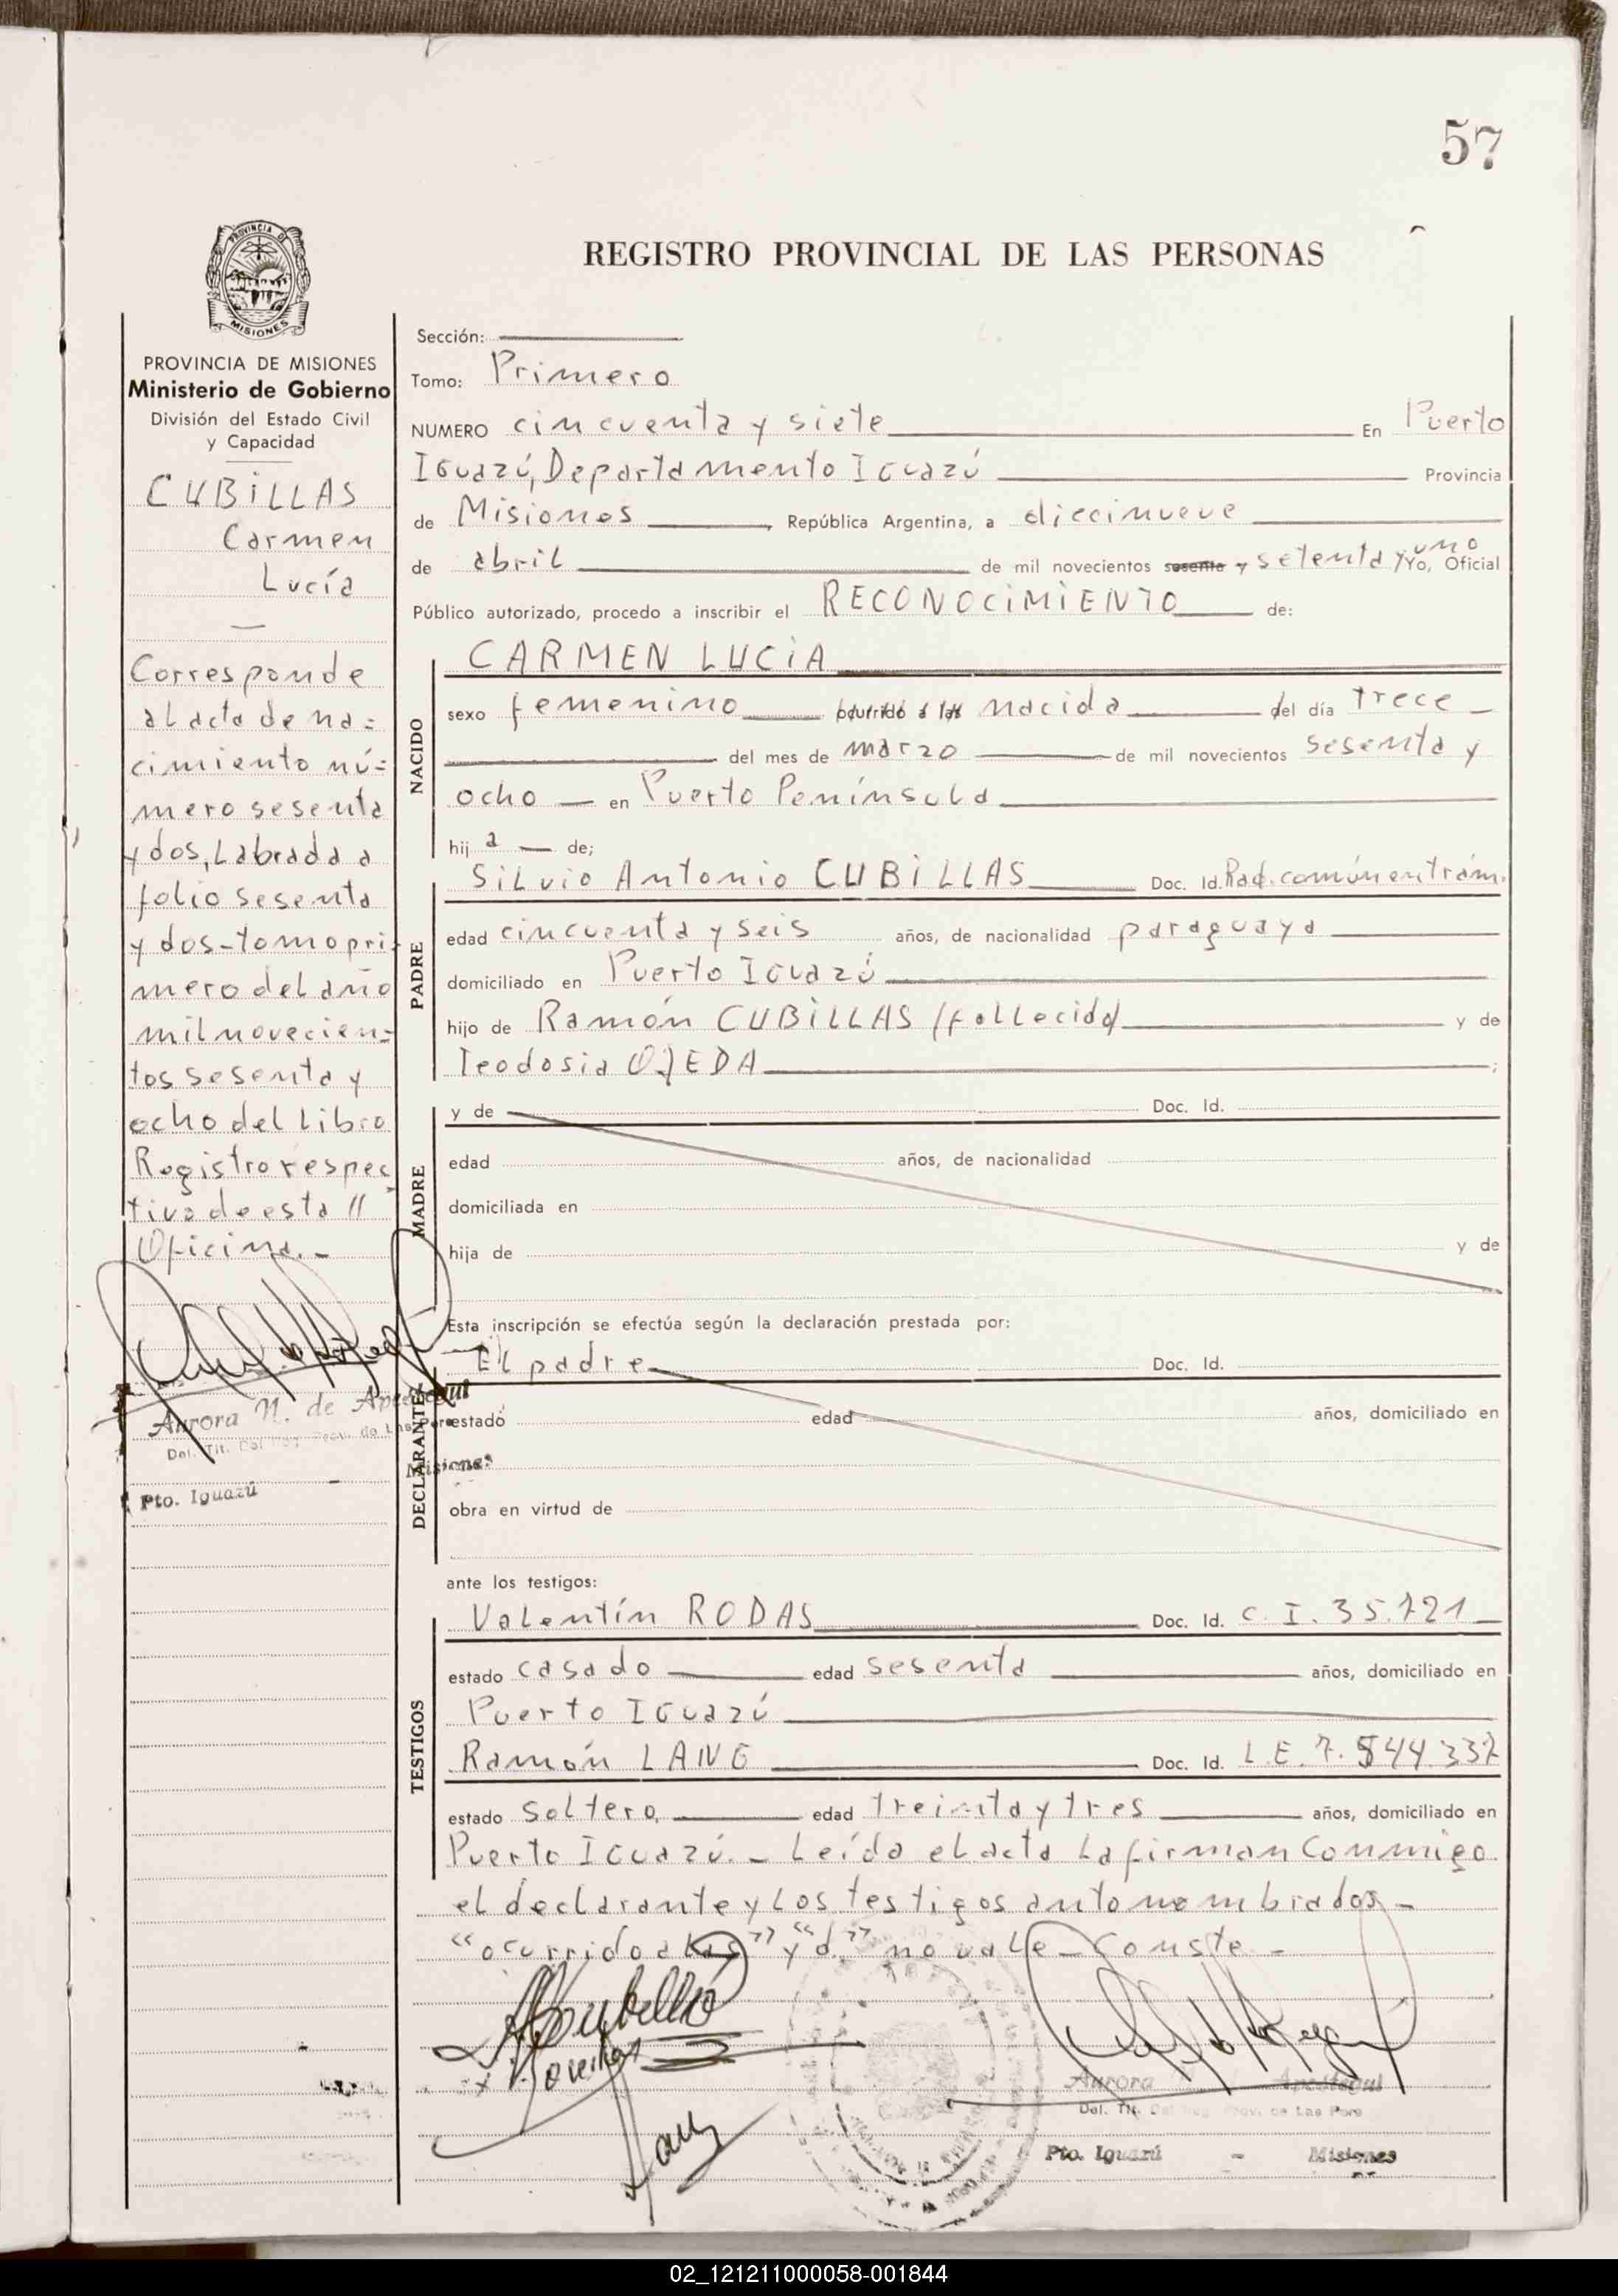 57
PROVINCIA DE
MISIONES
REGISTRO PROVINCIAL DE LAS PERSONAS
PROVINCIA DE MISIONES
Ministerio de Gobierno
División del Estado Civil
y Capacidad
CUBILLAS
Carmen
Lucía
Corresponde
al acta de na=
cimiento nú=
mero sesenta
y dos, Labrada a
folio sesenta
y dos-tomo pri-
mero del año
mil novecien=
tos sesenta y
ocho del Libro
Registro respec
tivo de esta //
Oficina.-
Aurora N. de Apestegui
Del. Tit. Del Reg. Prov. de Las Pers
Pto. Iguazú - Misiones
Sección:
Tomo: Primero
NUMERO cincuenta y siete En Puerto
Iguazú, Departamento Iguazú Provincia
de Misiones, República Argentina, a diecinueve
de abril de mil novecientos sesenta y setenta y uno Yo, Oficial
Público autorizado, procedo a inscribir el RECONOCIMIENTO de:
NACIDO
CARMEN LUCIA
sexo femenino ocurrido a las nacida del día trece
del mes de marzo de mil novecientos sesenta y
ocho en Puerto Península
hij a de;
PADRE
Silvio Antonio CUBILLAS Doc. Id. Rad. común en trám.
edad cincuenta y seis años, de nacionalidad paraguaya
domiciliado en Puerto Iguazú
hijo de Ramón CUBILLAS (fallecido) y de
Teodosia OJEDA ;
MADRE
y de Doc. Id.
edad años, de nacionalidad
domiciliada en
hija de y de
Esta inscripción se efectúa según la declaración prestada por:
DECLARANTE
El padre Doc. Id.
estado edad años, domiciliado en
obra en virtud de
ante los testigos:
TESTIGOS
Valentín RODAS Doc. Id. C. I. 35.721
estado casado edad sesenta años, domiciliado en
Puerto Iguazú
Ramón LANG Doc. Id. L.E. 7.544.337
estado soltero, edad treinta y tres años, domiciliado en
Puerto Iguazú.- Leída el acta La firman conmigo
el declarante y Los testigos antonombrados-
"ocurrido a las" y "d" no vale-Conste-
Aurora Apestegui
Del. Tit. Del Reg. Prov. de Las Pers
Pto. Iguazú - Misiones
02_121211000058-001844